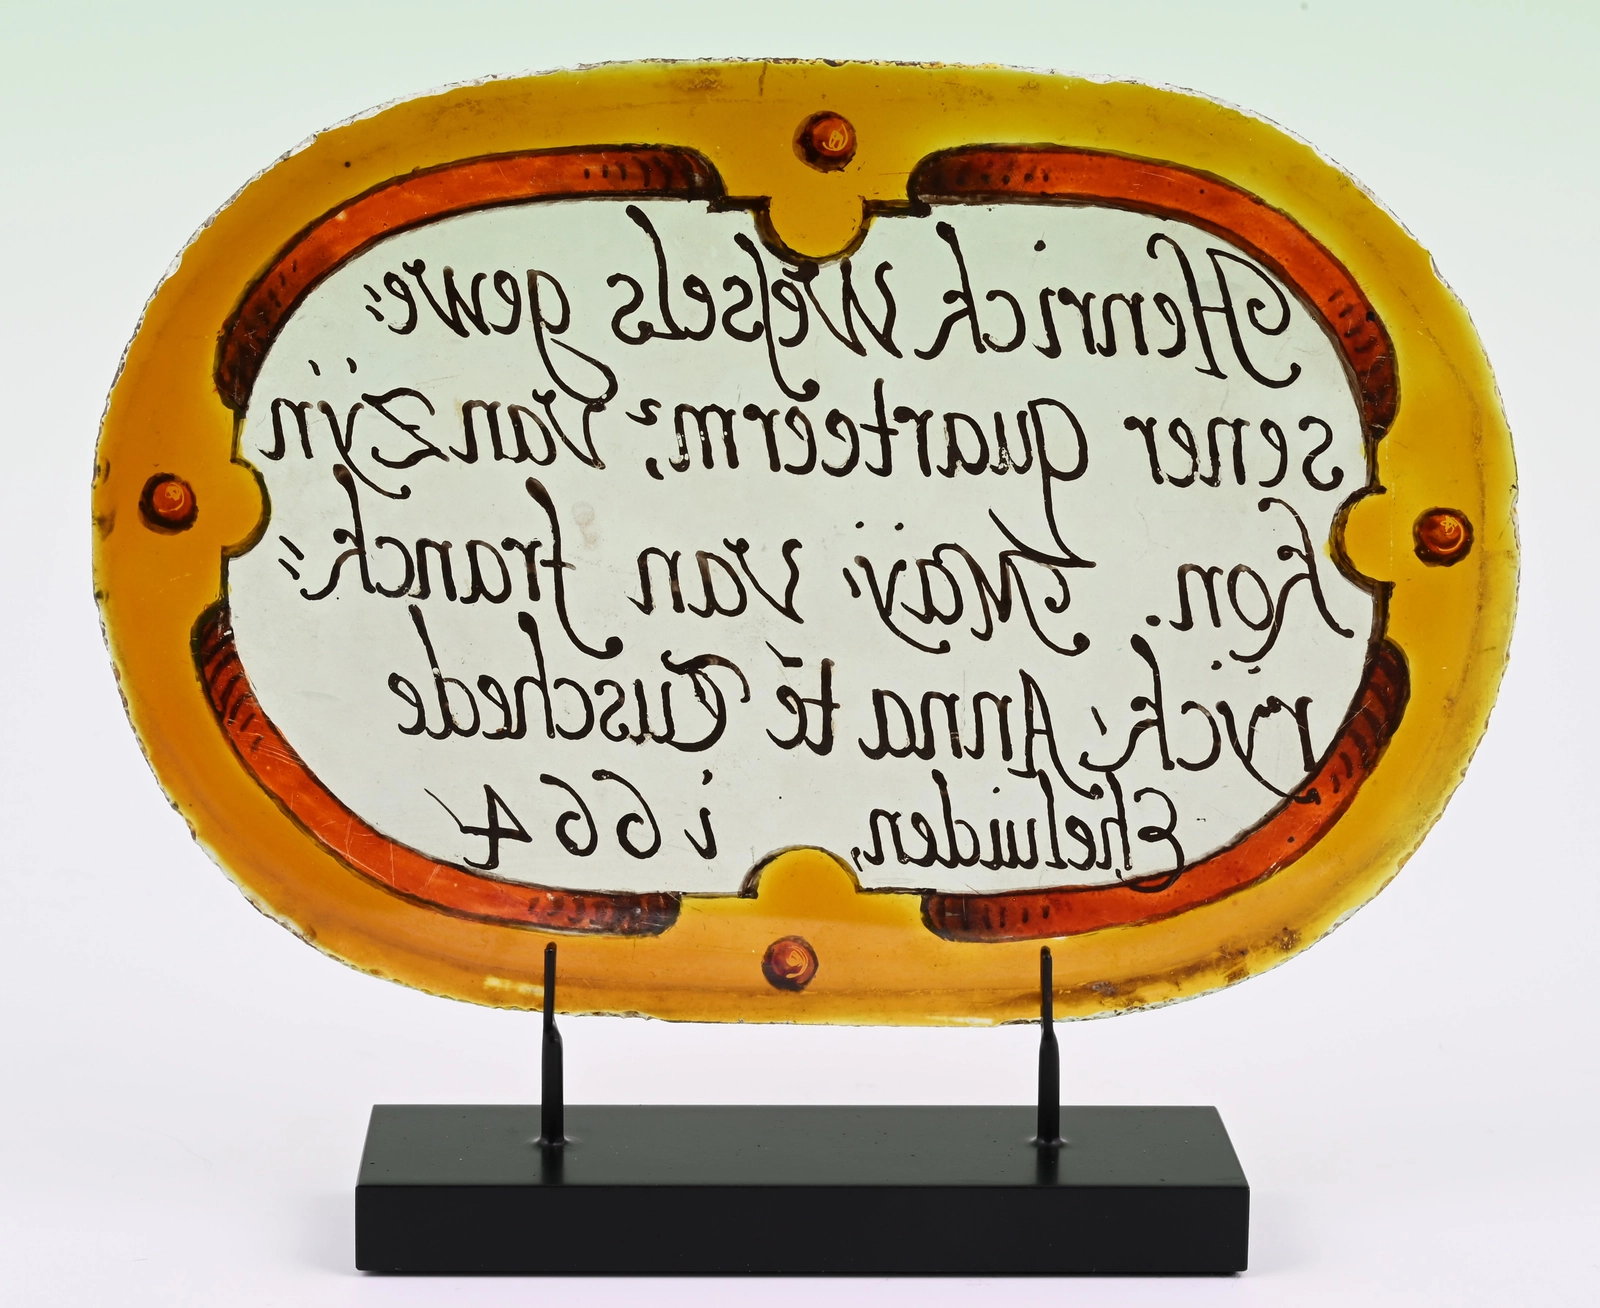 Henrick Wessels gewe:
sener quarteerm:ʳ Van Zÿn
Kon. Maÿ: van franck:
ryck: Anna te Cuschede
Eheluiden, i664